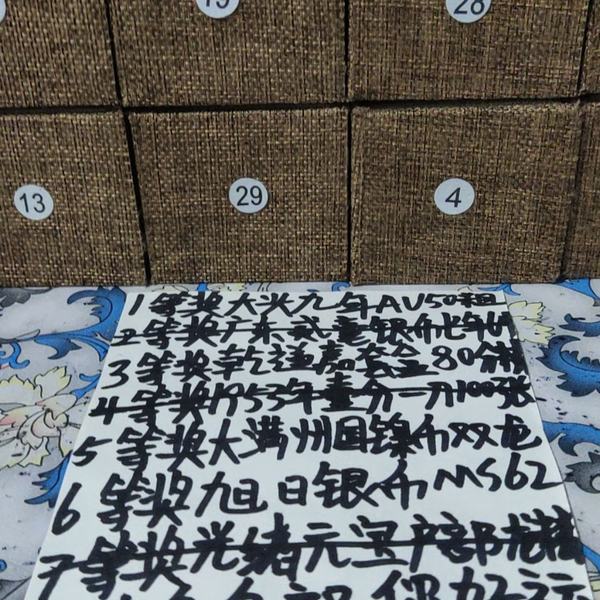 28
13 29 4
1等奖大头九年AV50粗
2等奖广东贰毫银币七年
3等奖乾道嘉套盒80分
4等奖1953年壹分一刀100张
5等奖大满州国镍币双龙
6等奖旭日银币MS62
7等奖光绪元宝户部龙